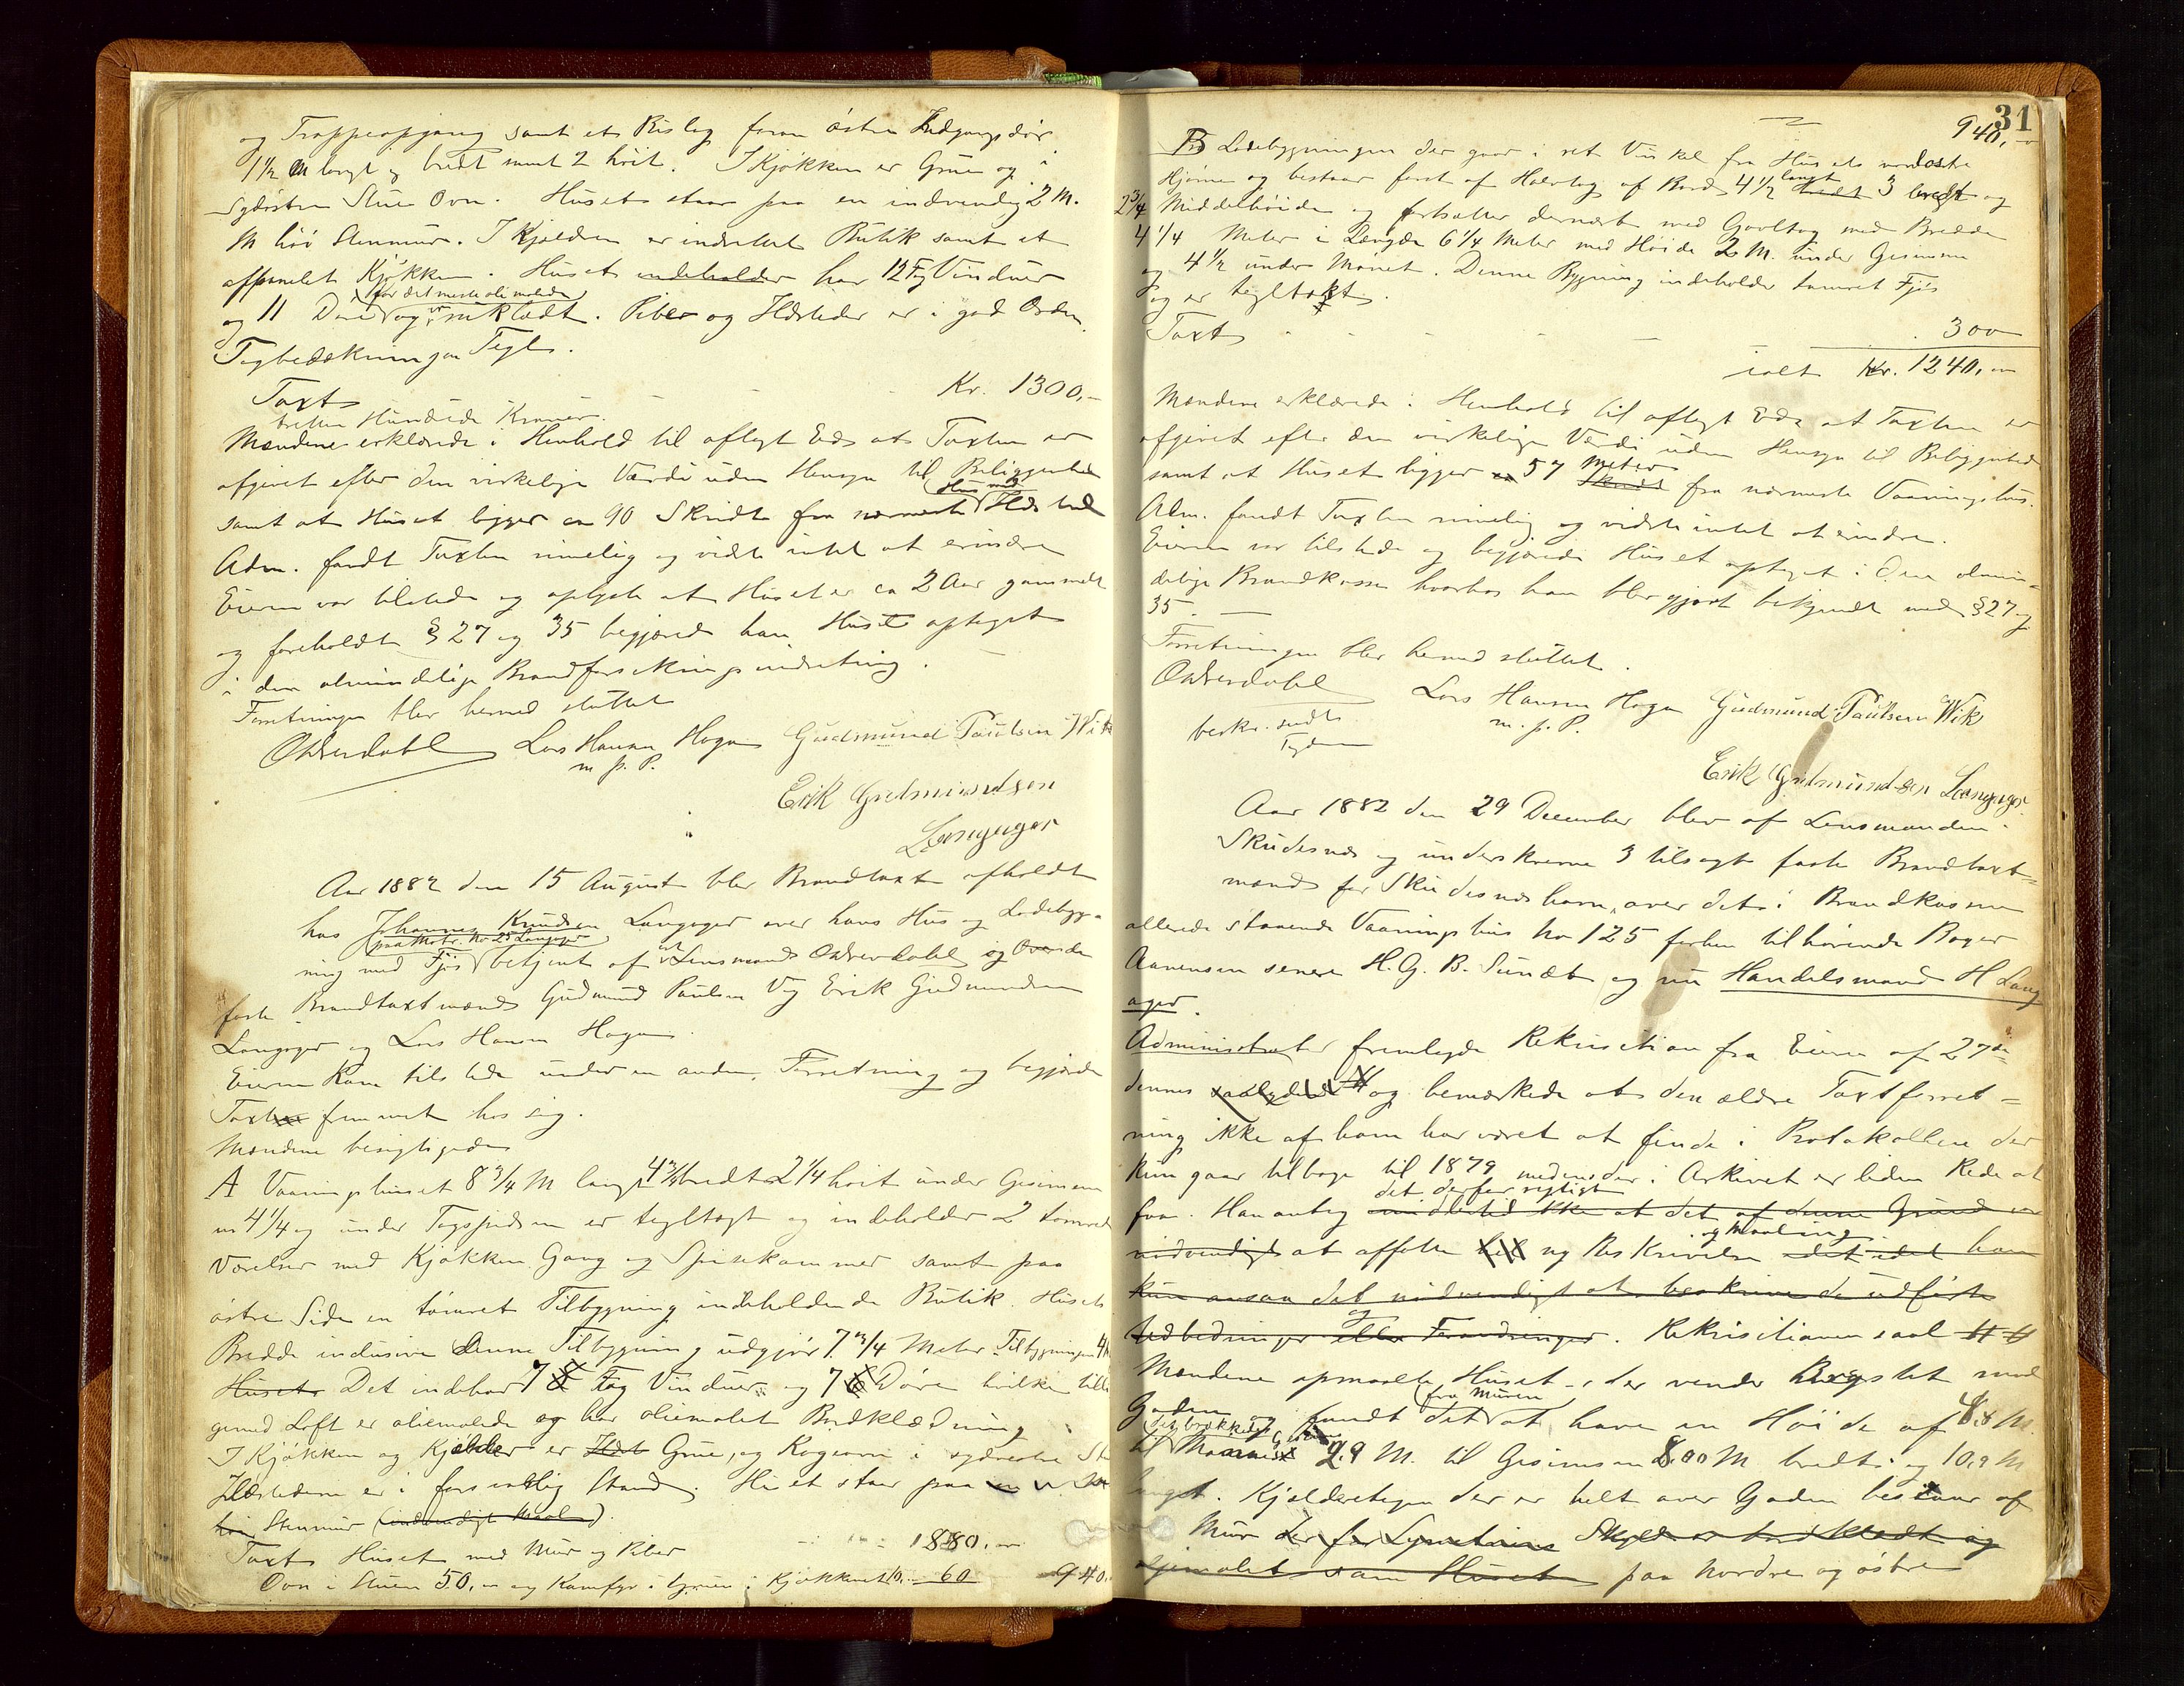 og Trappeopgang samt et Bislag foran östre Indgangsdör
1½ M langt og bredt samt 2 höit. I Kjökken er Grue og i
Sydöstre Stue Ovn. Huset staar paa en indvendig 2 M.
M höi Stenmur. I Kjelderen er indrettet Butik samt et
afpanelet Kjökken. Huset indeholder har 12 Fag Vinduer
for det meste oliemalede
og 11 Döre og er  . Piber og Ildsteder er i god Orden.
Tagbedækningen Tegl.
Taxt - - - Kr. 1300,-
tretten Hundrede Kroner.
Mændene erklærede i Henhold til aflagt Ed at Taxten er
afgivet efter den virkelige Værdi uden Hensyn til Beliggenhed
Hus med
samt at Huset ligger ca 90 Skridt fra nærmeste Ildsted
Adm. fandt Taxten rimelig og vidste intet at erindre
Eieren var tilstede og oplyste at Huset er ca 2 Aar gammelt
og foreholdt § 27 og 35 begjærede han Huset optaget
i den almindelige Brandforsikringsindretning.
Forretningen blev hermed sluttet
OAdverdahl Lars Hansen Haga Gudmund Paulsen Wik
m. p. P.
Erik Gudmundsen
Langager
Aar 1882 den 15 August blev Brandtaxt afholdt
hos Johannes Knudsen Langager over hans Hus og Ladebyg-
paa Matr. No 25 Langager
ning med Fjös betjent af Lensmand OAdverdahl og
faste Brandtaxtmænd Gudmund Paulsen Vig Erik Gudmundsen
Langager og Lars Hansen Haga.
Eieren kom tilstede under en anden Forretning og begjærede
Taxten fremmet hos sig.
Mændene besigtigede
A Vaaningshuset 8¾ M langt 4¾ bredt 2¼ höit under Gesimsen
 4¼ og under Tagspidsen er tegltagt og indeholder 2 tömrede
Værelser med Kjökken Gang og Spisekammer samt paa
östre Side en tömret Tilbygning indeholdende Butik. Husets
Bredde inclusive denne Tilbygning udgjör 7¾ Meter. Tilbygningen
Husets Det indehar 7 Fag Vinduer og 7 Döre hvilke
 Loft er oliemalede og har oliemalet Bordklædning
I Kjökken og Kjelder er Ildst Grue, og Kogeovn i sydvestre
Ildstederne er i forsvarlig Stand. Huset staar paa
höi Stenmur (indvendigt Maal).
Taxt Huset med Mur og Piber - - - 880,-
Ovn i Stuen 50,- og Komfyr i Gruen i Kjökkenet 10,- 60 940,
31
940,-
B Ladebygningen der gaar i ret Vinkel fra Husets nordöstre
langt
Hjörne og bestaar först af Halvtag af Bord 4½ bredt 3 bredt og
2¾ Middelhöide og fortsætter dernæst med Gavltag med Bredde
4¼ Meter i Længde 6¼ Meter med Höide 2 M. under Gesimsen
og 4½ under Mönet. Denne Bygning indeholder tömret Fjös
og er tegltækt.
Taxt - - - 300
ialt Kr. 1240,-
Mændene erklærede i Henhold til aflagt Ed at Taxten er
afgivet efter den virkelige Værdi uden Hensyn til Beliggenhed
Meter
samt at Huset ligger ca 57 Skridt fra nærmeste Vaaningshus.
Adm. fandt Taxten rimelig og vidste intet at erindre.
Eieren var tilstede og begjærede Huset optaget i Den almin-
delige Brandkasse hvorhos han blev gjort bekjendt med § 27 og
35.
Forretningen blev hermed sluttet.
OAdverdahl Lars Hansen Haga Gudmund Paulsen Wik
m. p. P.
Erik Gudmundsen Langager
Aar 1882 den 29 December blev af Lensmanden i
Skudesnæs og underskrevne 3 tilsagte faste Brandtaxt=
mænd for Skudesnæshavn, over det i Brandkassen
allerede staaende Vaaningshus No 125 forhen tilhörende Roger
Aanensen senere H. G. B. Sundt og nu Handelsmand H Lang
ager.
Administrator fremlagde Rekvisition fra Eieren af 27de
dennes saalydende og bemærkede at den ældre Taxtforret=
ning ikke af ham har været at finde i Protokollen der
kun gaar tilbage til 1879 medens der i Arkivet er liden Rede at
det derfor rigtigt
faa. Han antog imidlertid ikke at det af denne Grund er
og Maaling
nödvendigt at affatte ny Beskrivelse det idet han
kun ansaa det nödvendigt at beskrive de udförte
og
Udbedringer eller Forandringer. Rekvisitionen saal
Mændene opmaalte Huset der vender  mod
fra Muren
Gaden og fandt det at have en Höide af 4.8 M.
til  2.9 M. til Gesimsen 8.00 M bredt og 10.9 M
langt. Kjelderetagen der er helt over Gaden bestaar af
Mur  Skyld er bordklædt og
oljemalet som Huset paa nordre og östre